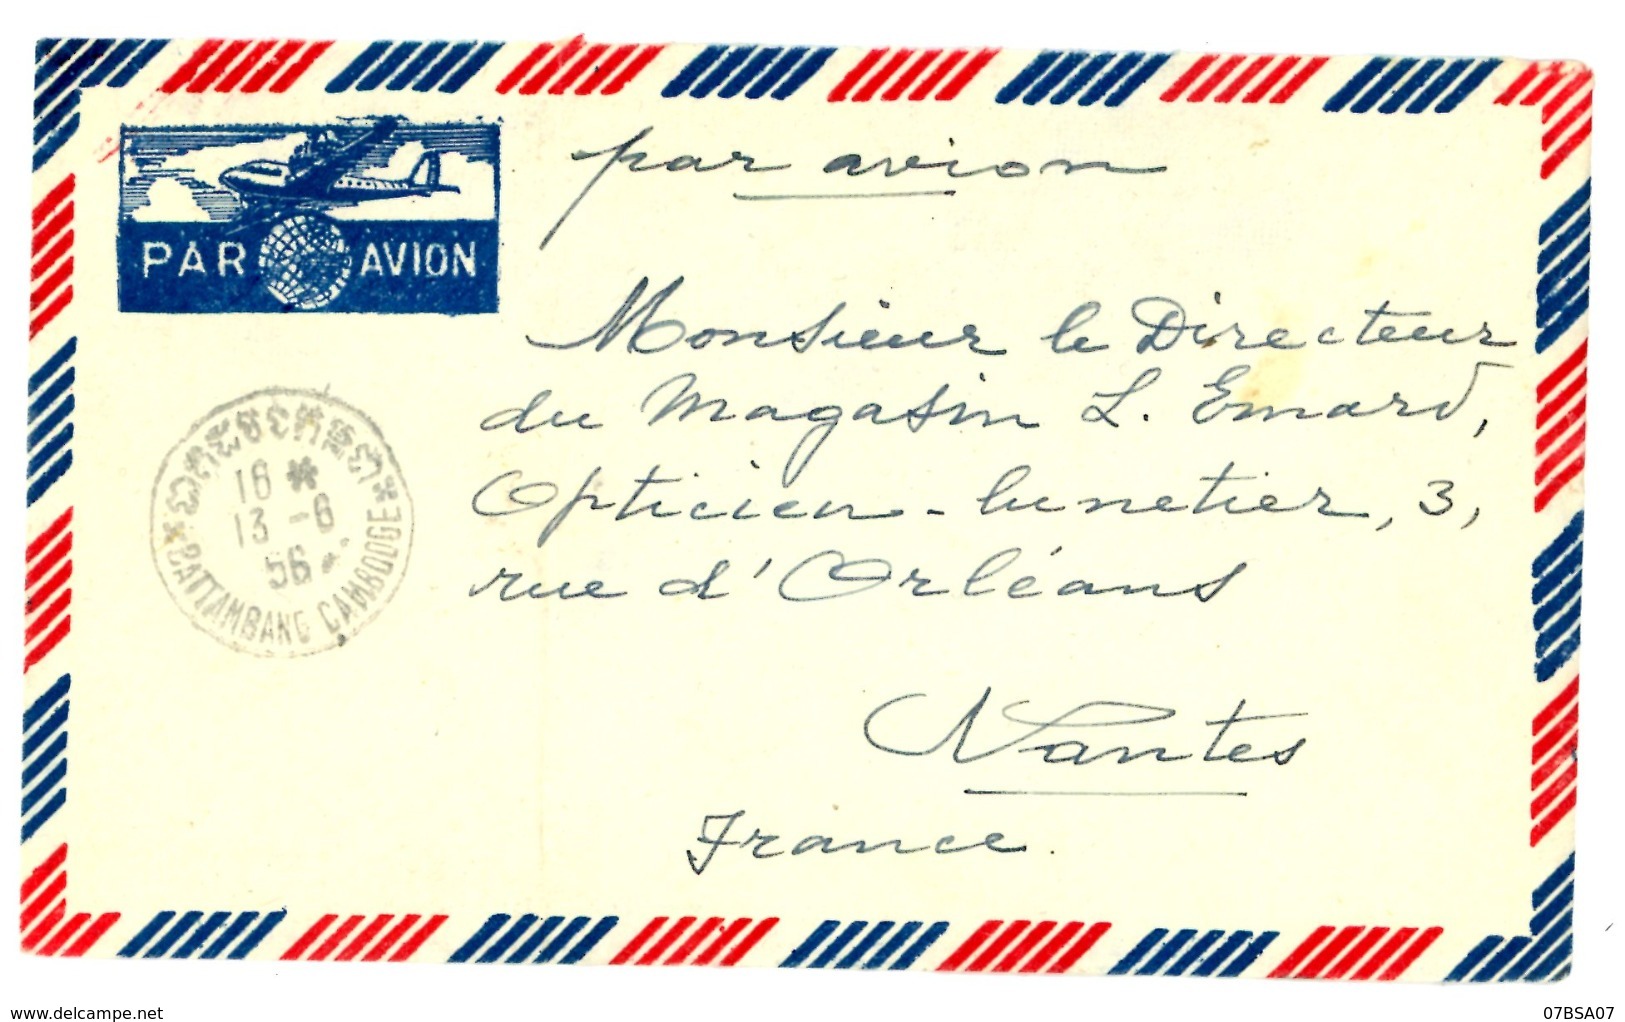 par avion
PAR AVION
Monsieur le Directeur
du Magasin L. Emard,
Opticien-lunetier, 3,
rue d'Orléans
Nantes
France.
16 *
13 -6
56
BATTAMBANG CAMBODGE
www.delcampe.net
07BSA07